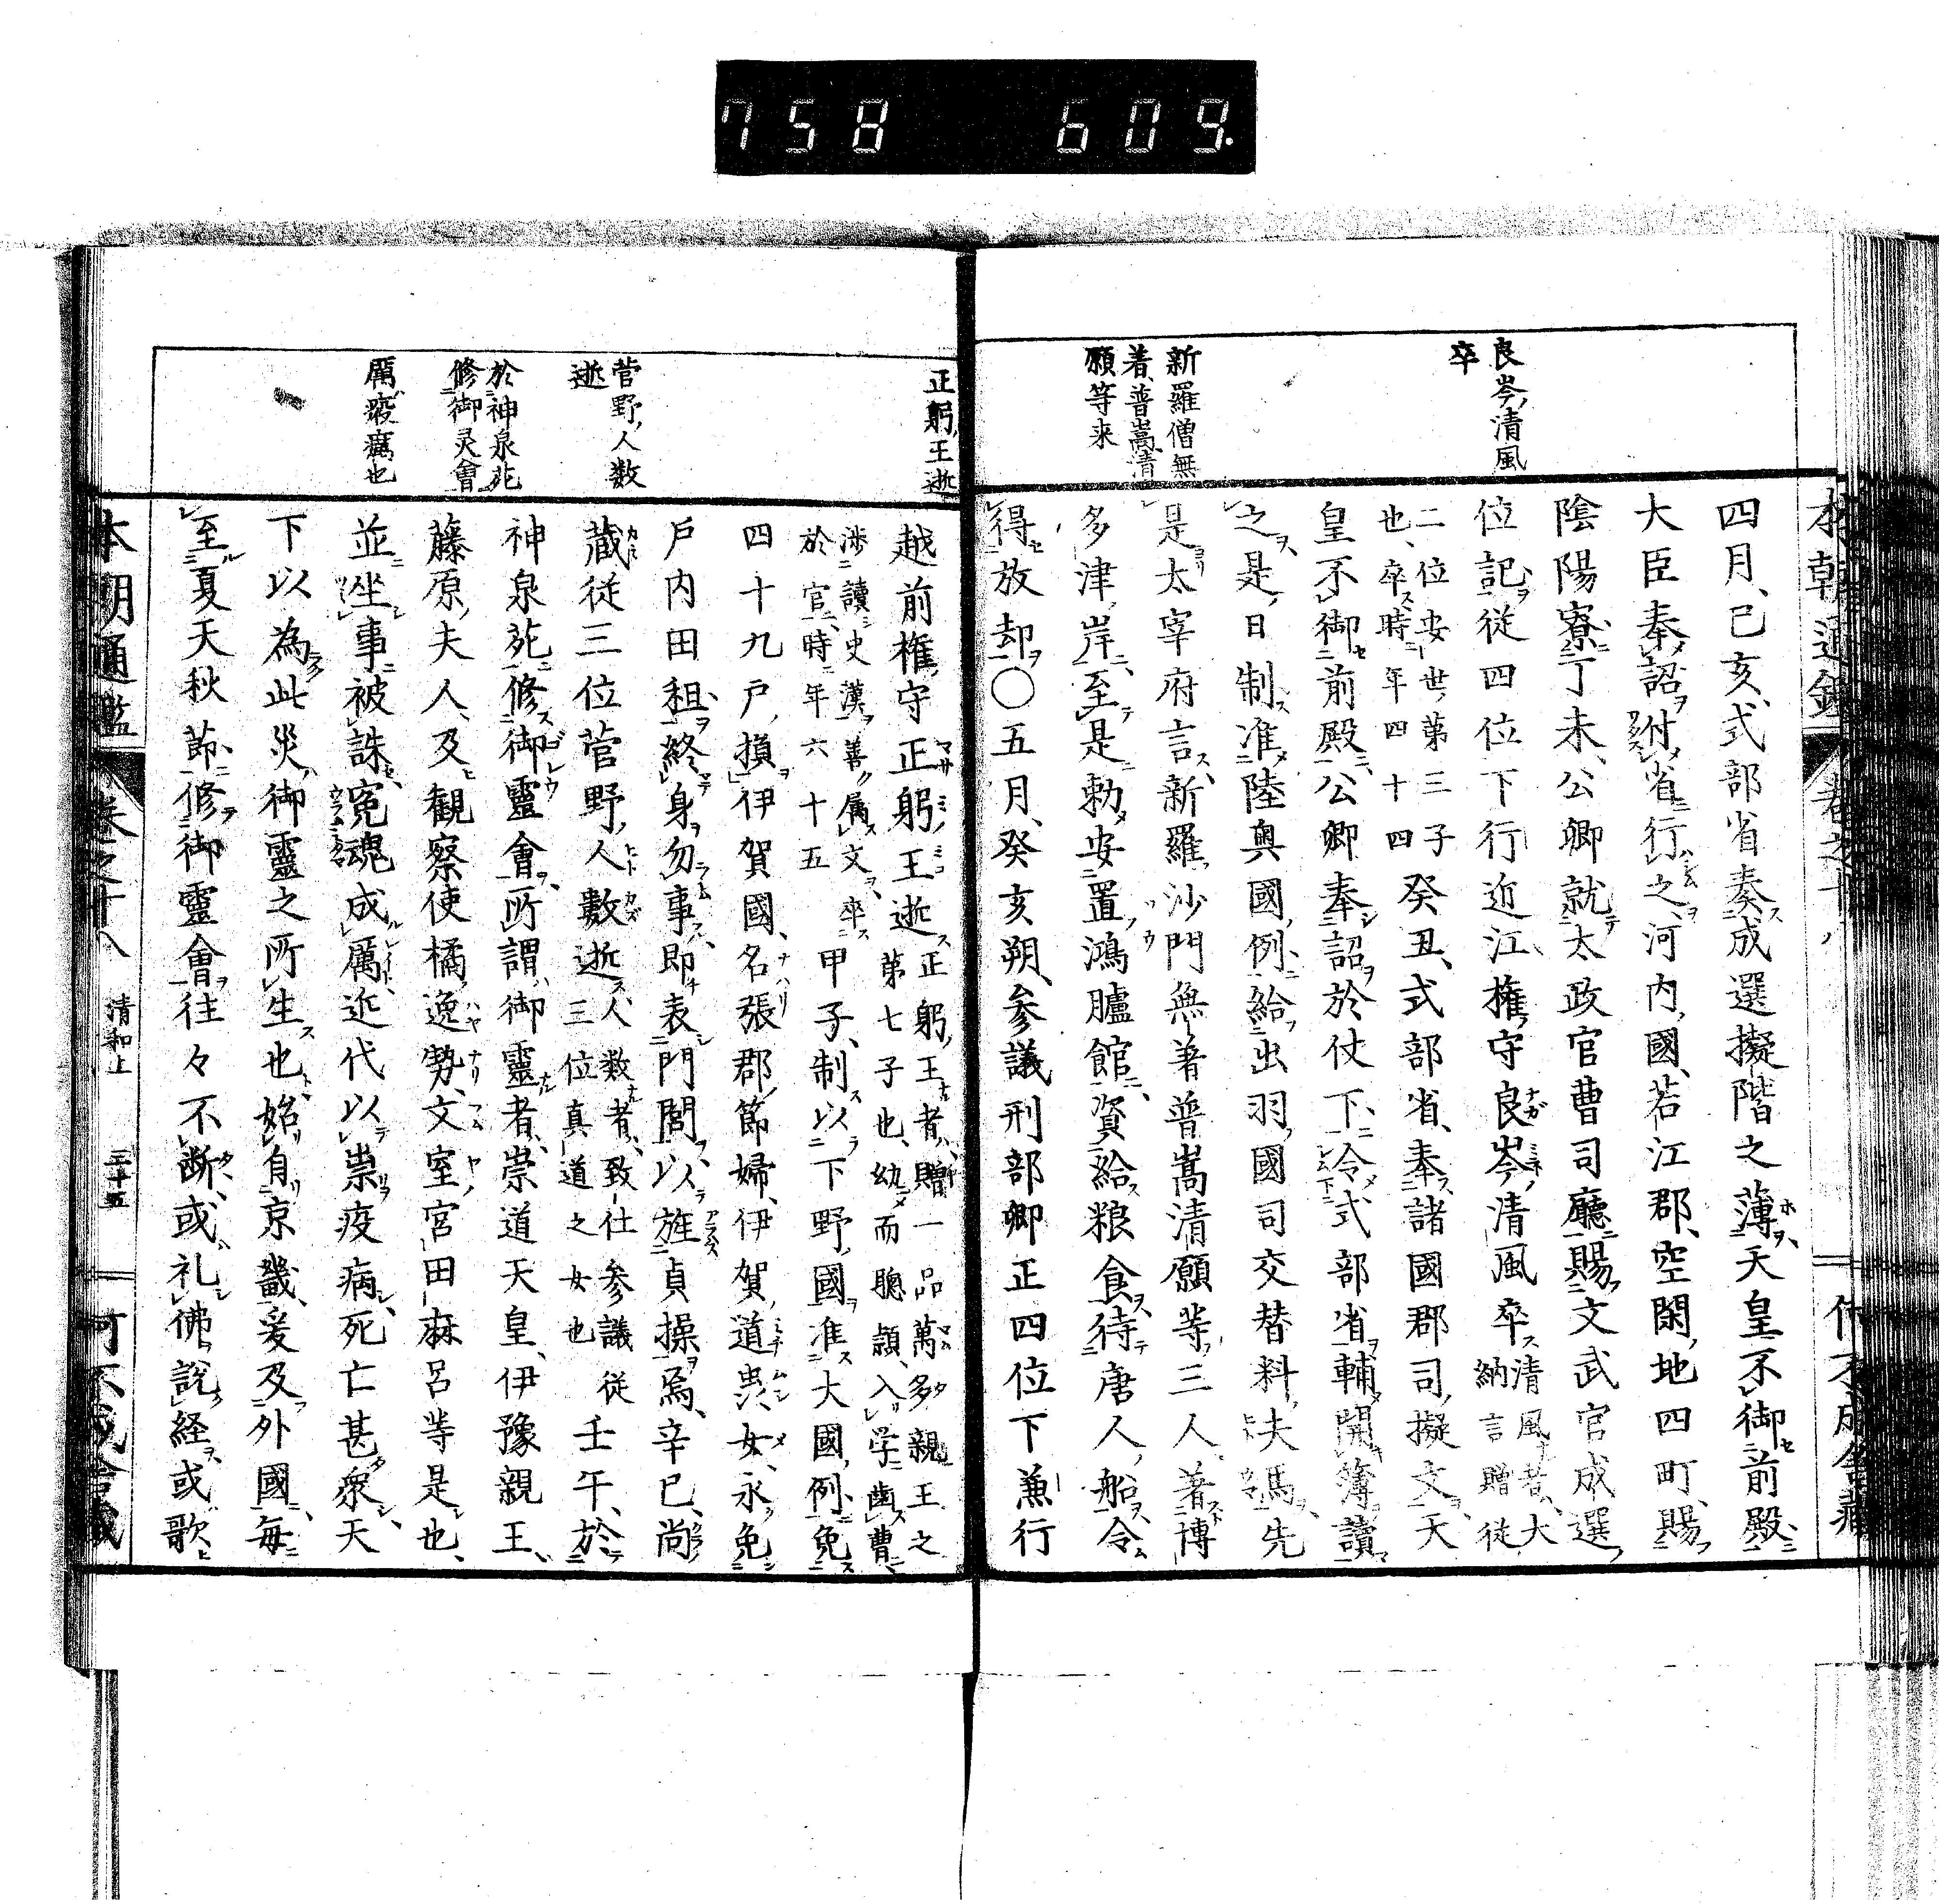 758 609.
良岑清風
卒
新羅僧無
著普嵩清
願等来
四月、己亥、式部省奏成選擬階之薄、天皇不御前殿、
大臣奉詔付省行之、河内國、若江郡、空閑地四町、賜
陰陽寮、丁未、公卿就太政官曹司廳、賜文武官成選
位記、従四位下行近江權守良岑清風卒
清風昔、大
納言贈従
二位安世第三子
也、卒時年四十四
癸丑、式部省、奉諸國郡司擬文、天
皇不御前殿、公卿奉詔於仗下、令式部省輔開簿讀
之、是日制、准陸奥國例、給出羽國司交替料夫馬、先
是太宰府言、新羅沙門無著普嵩清願等三人、著博
多津岸、至是勅安置鴻臚館、資給粮食、待唐人船、令
得放却〇五月、癸亥朔、参議刑部卿正四位下兼行
正躬王逝
菅野人数
逝
於神泉苑
修御灵會
厲疫癘也
越前權守正躬王逝
正躬王者、贈一品萬多親王之
第七子也、幼而聰頴、入学齒曹
渉讀史漢善属文、卒
於官、時年六十五
甲子、制以下野國准大國例、免
四十九戸、損伊賀國、名張郡節婦、伊賀道虫女、永免
戸内田租、終身勿事、即表門閭、以旌貞操焉、辛巳、尚
藏従三位菅野人數逝
人数者、致仕参議従
三位真道之女也
壬午、於
神泉苑修御靈會、所謂御靈者、崇道天皇、伊豫親王、
藤原夫人、及觀察使橘逸勢、文室宮田麻呂等是也、
並坐事被誅、寃魂成厲、近代以来疫病、死亡甚衆、天
下以為此災、御靈之所生也、始自京畿、爰及外國、毎
至夏天秋節、修御靈會、往々不断、或礼佛説経、或歌
本朝通鑑　卷之十八　清和上　三十五